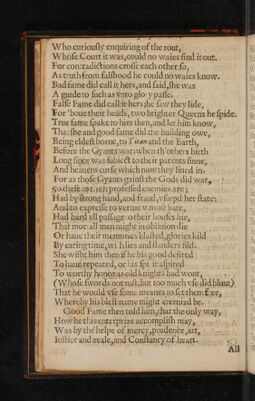 Who curiously enquiring of the rout,
Whose Court it was, could no waies find it out.
For contradictions crosse each other so,
As truth from falshood he could no waies know.
Bad fame did call it hers, and said, she was
A guide to such as vnto glory passe.
False Fame did call it hers, she saw they lide,
For 'boue their heads, two brighter Queens he spide.
True fame spake to him then, and let him know,
That she and good fame did the building owe,
Being eldest borne, to Titan and the Earth,
Before the Gyants wars when th'others birth
Long since was subiect to their parents sinne,
And heauens curse which now they liued in.
For as those Gyants gainst the Gods did war,
So these not professed enemies are;
Had by strong hand, and fraud, vsurpd her state;
And to expresse to vertue vtmost hate,
Had bard all passage to their houses late,
That mortall men naught in obliuion die
Or haue their memories blasted, glories kild
By eating time, with lies and slanders fild.
She wisht him then if he his good desired
To haue repeated, or his spirit aspired
To worthy honor as old knights had wont,
(Whose swords not rust, but too much vse did blunt)
That he would vse some meanes to set them free,
Whereby his blest name might eternizd be.
Good Fame then told him, that the only way,
How he this enterprize accomplish may,
Was by the helpe of mercy, prudence, art,
Iustice and zeale, and Constancy of heart.
All